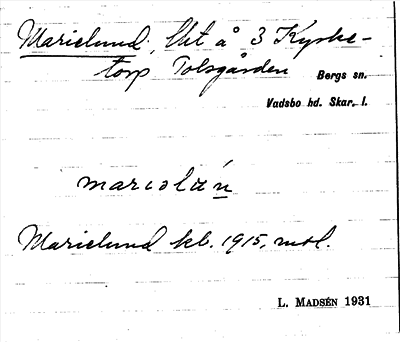 Marielund, lht å 3 Kyrke-
torp Tolsgården Bergs sn.
Vadsbo hd. Skar. l.
marıəlɯ́n
Marielund kb. 1915, mtl.
L. MADSÉN 1931